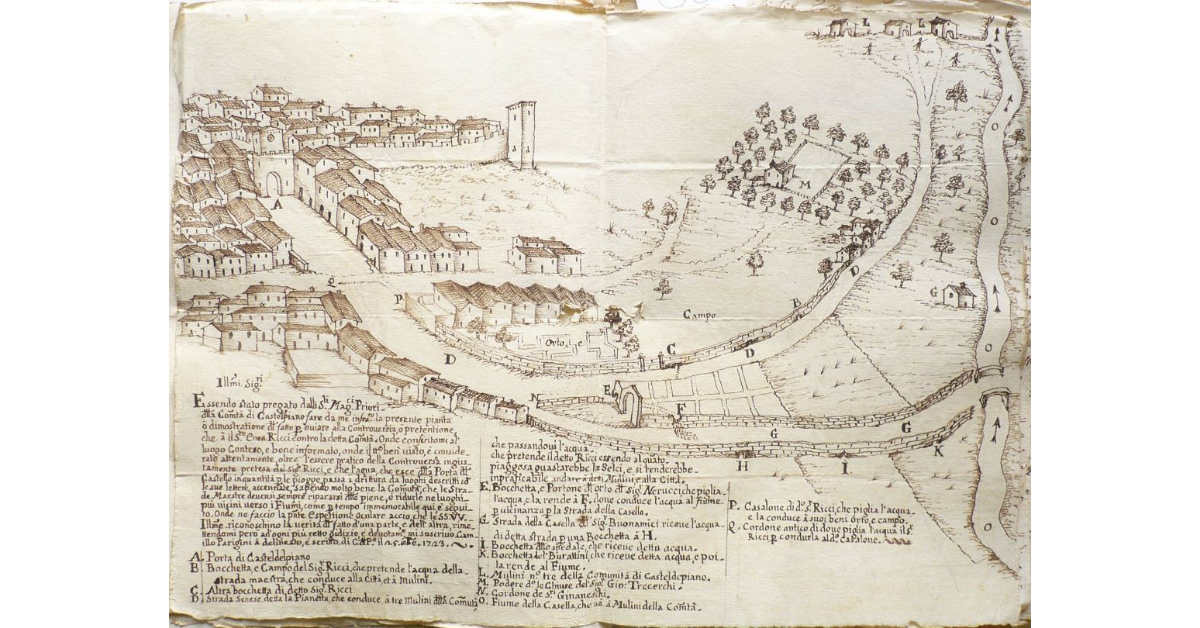 L L L
A
M
O
O
D
B
G
O
Q
P
Campo
C
D
Orto
D
E
N
F
G
G
H
I
K
O
Illmi. Sigri
Essendo stato pregato dalli Sri. Magci. Priori
della Comtà di Casteldpiano fare da me infratto la presente pianta
ò dimostratione di fatto p oviare alla Controversia, ò pretentione
che à il Sr. Enea Ricci contro la detta Comtà, Onde conferitomi al
luogo Conteso, e bene informato, onde il tt. ben visto, e conside
rate attentamente, oltre l'essere pratico della Controversa ingius
tamente pretesa dal Sigr. Ricci, e che l'acqua, che esce dlla Porta di
Castello inquantità p le piogge passa a dritura da luoghi descritti cō
le sue lettere accennate, Sapendo molto bene la Comtà, che le Stra
de Maestre devensi sempre ripararsi dlle piene, e ridurle ne luoghi
più vicini verso i Fiumi, come p tempo immemorabile qui è segui
to. Onde ne faccio la pnte espetione oculare accio che le SS. VV.
Illme. riconoschino la verità di fatto d'una parte, e dell'altra, rime
ttendomi però ad ogni più retto giditio, e devotam. mi suscrivo Cam
millo Parigini à delineato, e scritto di C. P. il 25. 1723.
A Porta di Casteldelpiano
B Bocchetta, e Campo del Sigr. Ricci, che pretende l'acqua della
strada maestra, che conduce alla città et à Mulini.
C. Altra bocchetta di detto Sigr. Ricci
D. Strada Senese detta la Pianetta, che conduce, à tre Mulini dlla Comtà
che passandovi l'acqua
che pretende il detto Ricci essendo alquāto
piaggosa guastarebbe la Selci, e si renderebbe
inpraticabile andare à detti Mulini, e alla Città.
E. Bocchetta, e Portone di orto di Sigr. Nerucci che piglia
l'acqua, e la rende à F. dove conduce l'acqua al fiume
p vicinanzo p la Strada della Casella.
G. Strada della Casella Sigr. Buonamici riceve l'acqua
di detta strada p una Bocchetta à H.
I. Bocchetta dllo spedale, che riceve detto acqua.
K. Bocchetta del Burattini, che riceve detta acqua, e poi
la rende al Fiume.
L. Mulini no. tre della Comunità di Casteldepiano.
M. Podere do. le Chiuse del Sigr. Gio: Trecerchi.
N. Gordone de Sri. Ginaneschi.
O. Fiume della Casella, che và à Mulini della Comtà.
P. Casalone di do. Sr. Ricci, che piglia l'acqua
e la conduce à suoi beni orto, e campo.
Q. Cordone antico di dove piglia l'acqua il Sr.
Ricci p condurla al do. casalone.